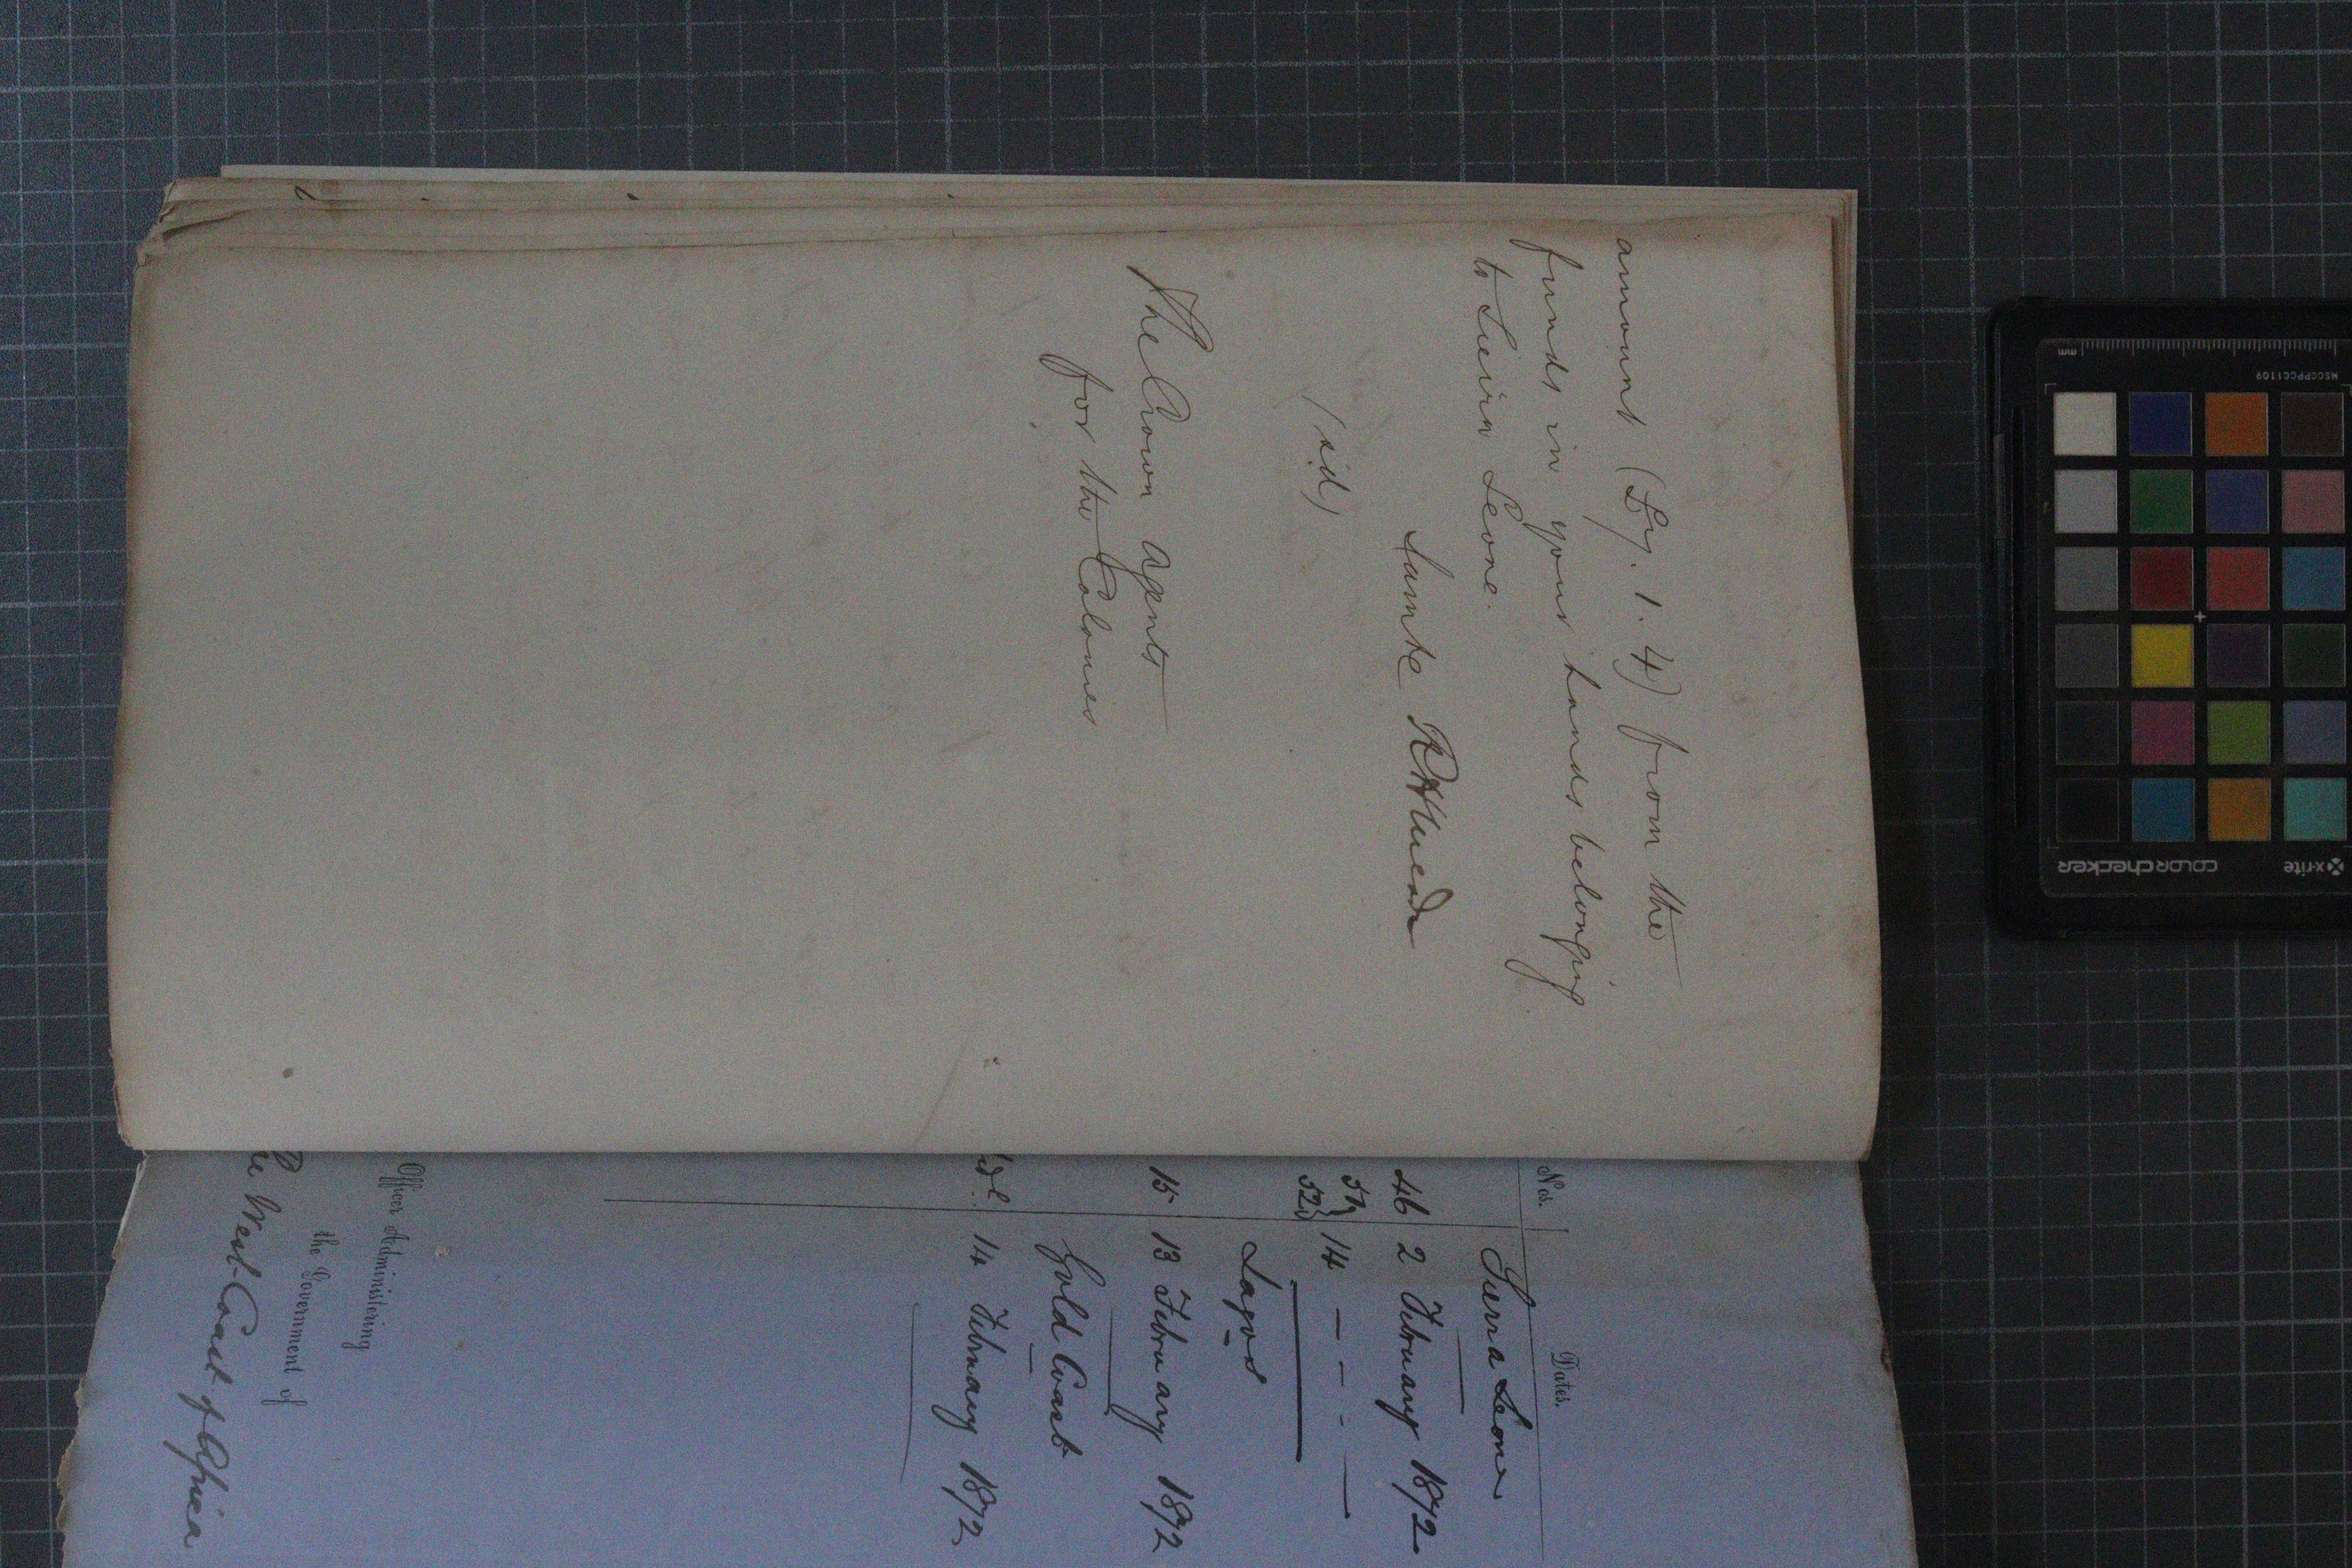 amount (£7. 1. 4) from the
funds in your hands belonging
to Sierra Leone.
I am &c
(sd)
The Crown Agents
for the Colonies
Nos. Dates.
Sierra Leone
46 2 February 1872
51 } 14 — - - —
52 }
Lagos
15 13 February 1872
Gold Coast
14 February 1872
Officer Administering
the Government of
West Coast of Africa
mm
MSCCPPCC1109
x-rite
colorchecker